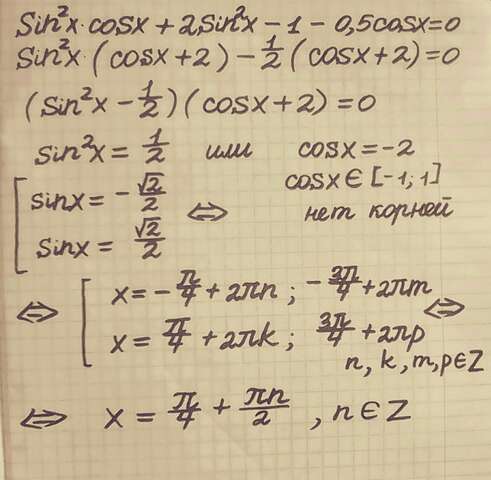 Sin²x·cosx + 2Sin²x − 1 − 0,5cosx = 0
Sin²x · (cosx + 2) − 1/2 (cosx + 2) = 0
(sin²x − 1/2)(cosx + 2) = 0
sin²x = 1/2 или cosx = −2
cosx ∈ [−1; 1]
[ sinx = −√2/2 ⇔ нет корней
sinx = √2/2
⇔ [ x = −π/4 + 2πn ; −3π/4 + 2πm ⇔
x = π/4 + 2πk ; 3π/4 + 2πp
n, k, m, p ∈ Z
⇔ x = π/4 + πn/2 , n ∈ Z